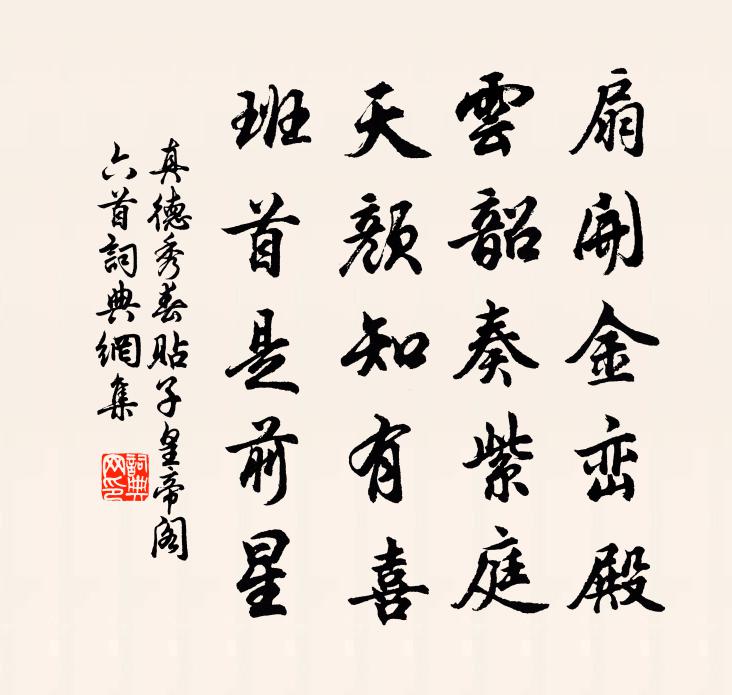 扇開金峦殿
雲韶奏紫庭
天顏知有喜
班首是前星
真德秀春貼子皇帝阁
六首詞典網集
詞典网印